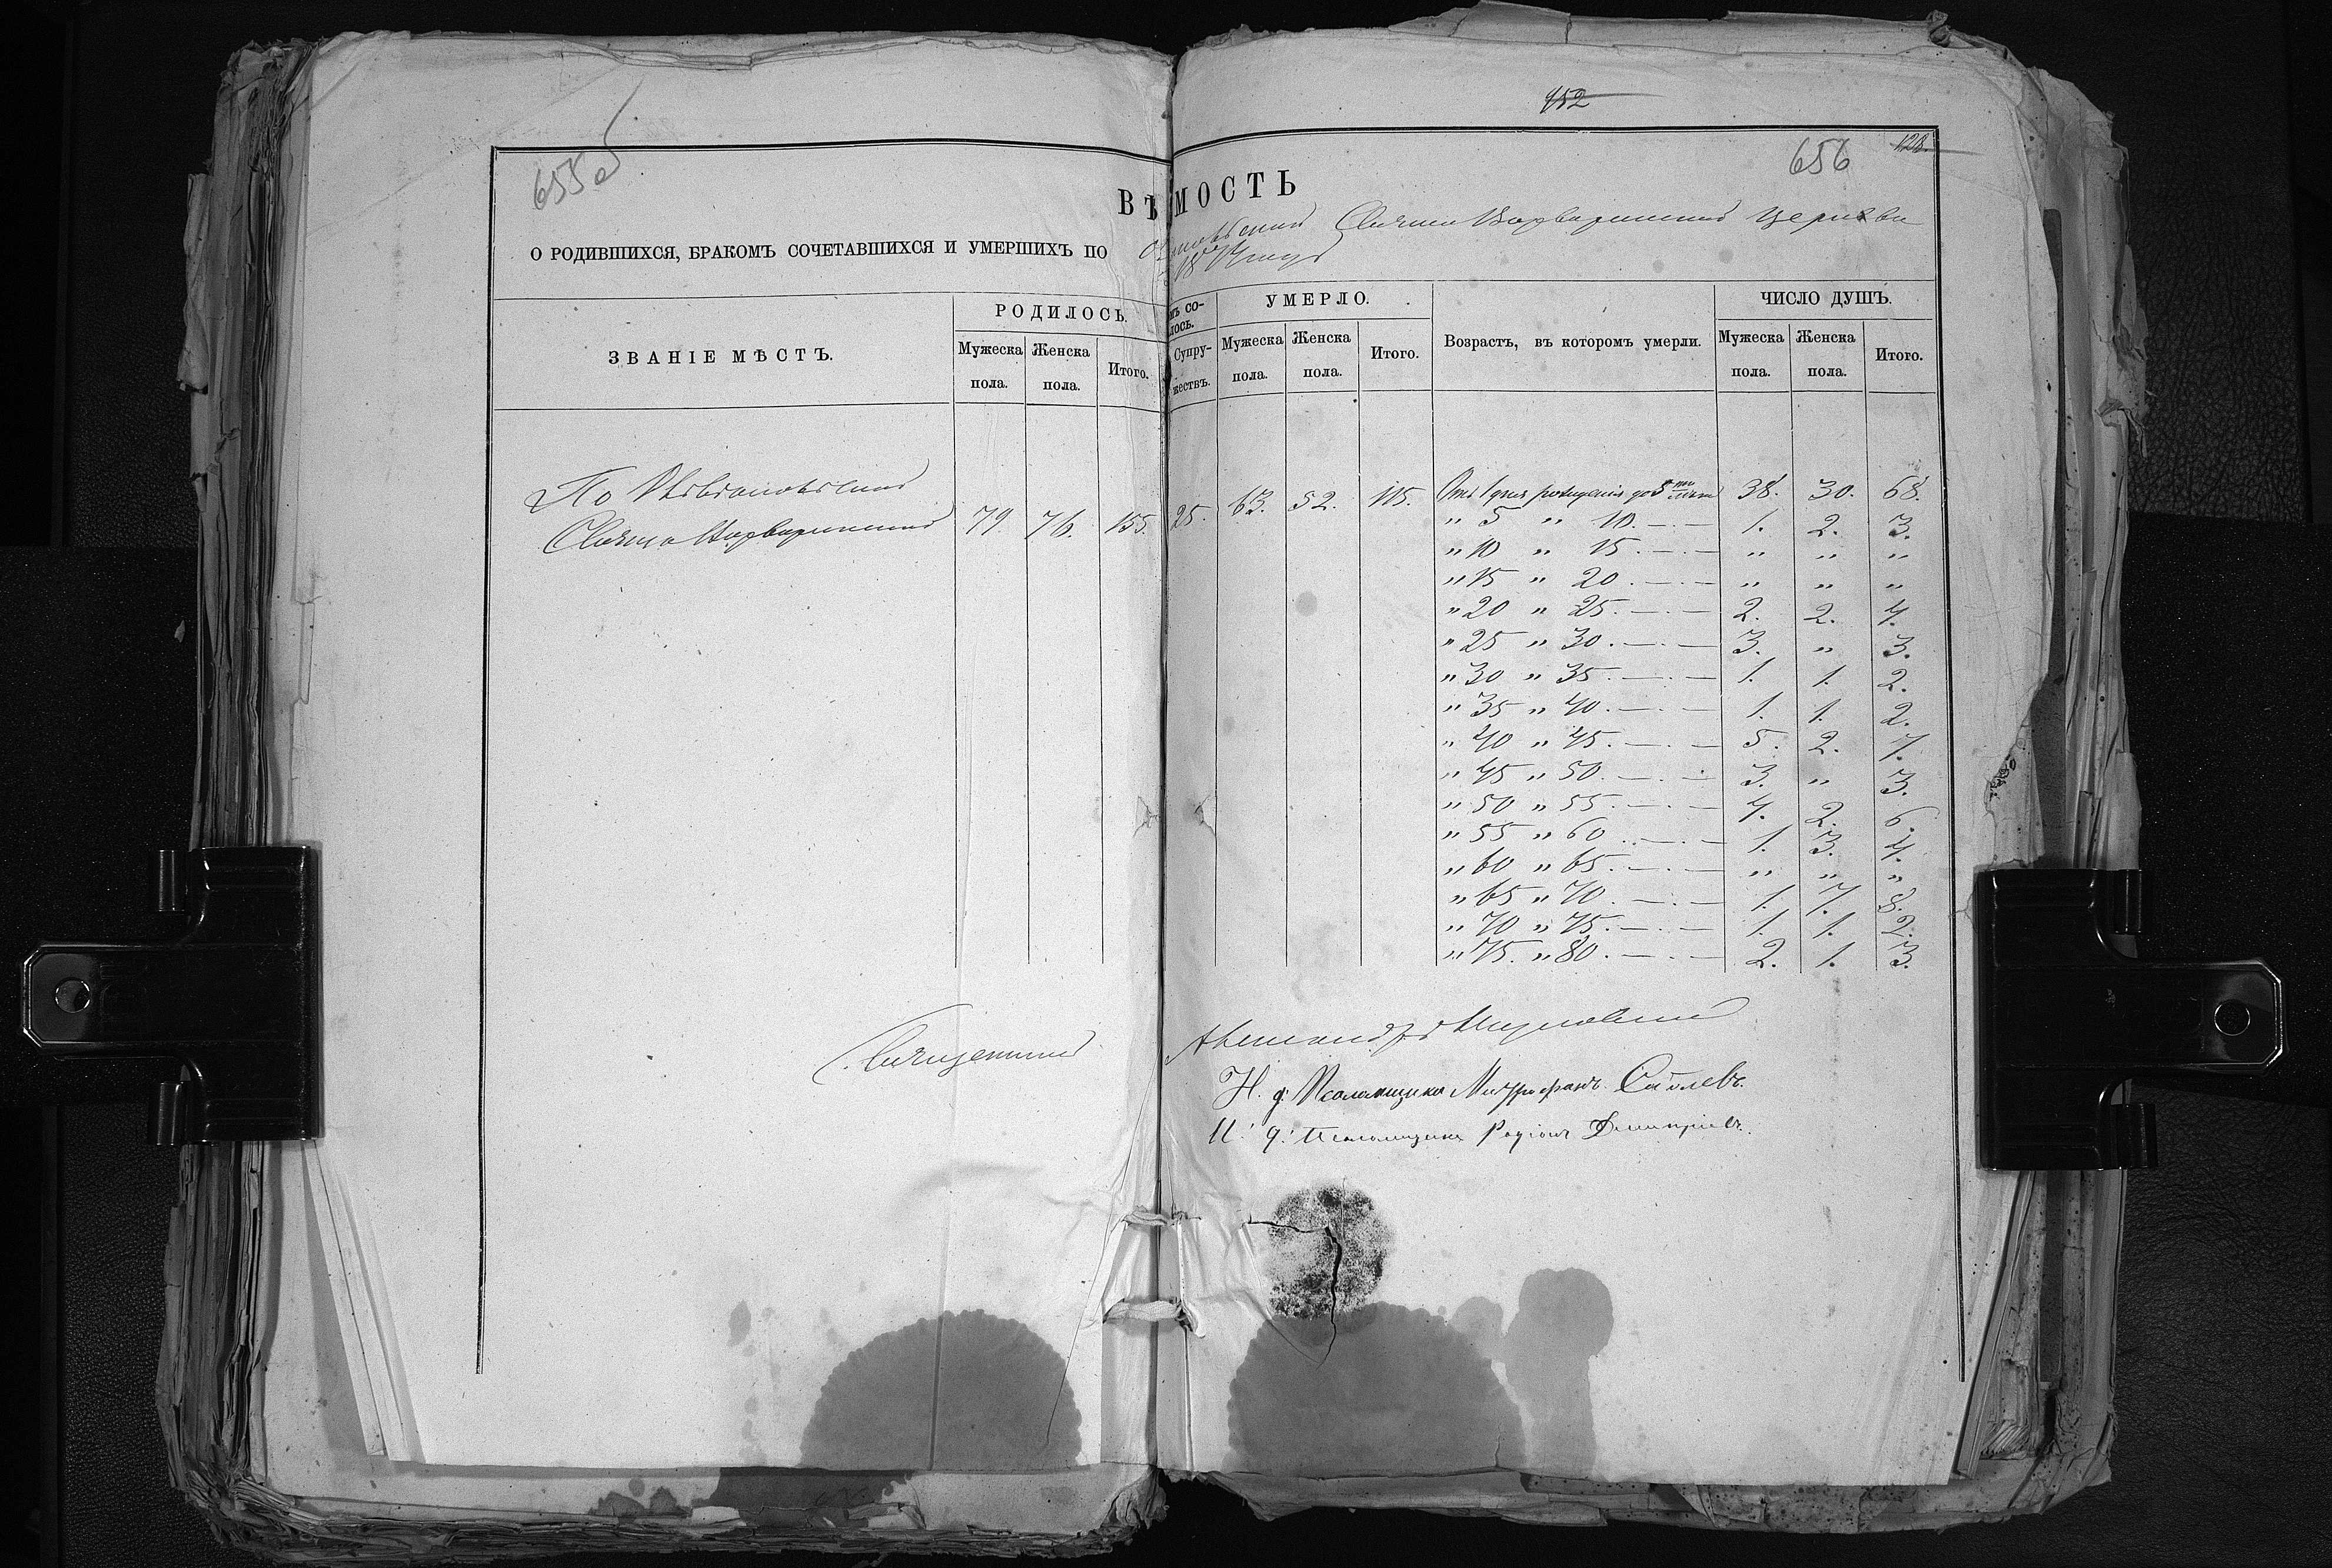 452
655 об
656
128.
ВѢ МОСТЬ
О РОДИВШИХСЯ, БРАКОМЪ СОЧЕТАВШИХСЯ И УМЕРШИХЪ ПО
Свято Варваринской Церкви
ЗВАНІЕ МѢСТЪ.
РОДИЛОСЬ.
Мужеска пола.
Женска пола.
Итого.
мъ со-
лось.
Супру-
жествъ.
УМЕРЛО.
Мужеска пола.
Женска пола.
Итого.
Возрастъ, въ которомъ умерли.
ЧИСЛО ДУШЪ.
Мужеска пола.
Женска пола.
Итого.
По
Свято Варваринской 79. 76. 155. 25. 63. 52. 115.
Отъ 1 дня рожденія до 5ти лѣтъ 38. 30. 68.
" 5 " 10. — . — 1. 2. 3.
" 10 " 15. — . — " " "
" 15 " 20. — . — " " "
" 20 " 25. — . — 2. 2. 4.
" 25 " 30. — . — 3. " 3.
" 30 " 35. — . — 1. 1. 2.
" 35 " 40. — . — 1. 1. 2.
" 40 " 45. — . — 5. 2. 7.
" 45 " 50. — . — 3. " 3.
" 50 " 55. — . — 4. 2. 6.
" 55 " 60 . — . — 1. 3. 4.
" 60 " 65. — . — " " "
" 65 " 70. — . — 1. 7. 8.
" 70 " 75. — . — 1. 1. 2.
" 75. " 80. — . — 2. 1. 3.
Священникъ Александръ
И. д. Псаломщика Митрофанъ Соболевъ.
И. д. Псаломщика Родіонъ Дмитріевъ.